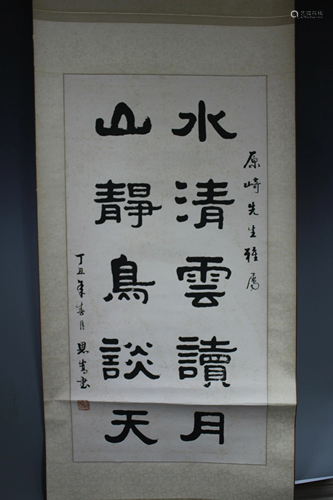 原崎先生雅属
水清雲讀月
山靜鳥談天
丁丑年春月